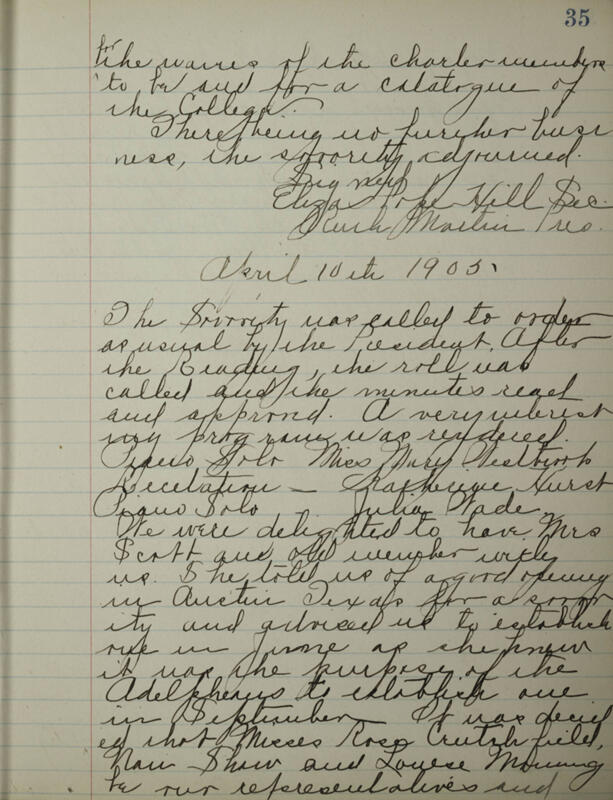 35
for
the names of the charter members
to be and for a catalogue of
the College.
There being no further busi
ness, the sorority adjourned.
Signed
Eliza Hill Sec.
Ruth Martin Pres.
April 10th 1905.
The Sorority was called to order
as usual by the President. After
the Reading, the roll was
called and the minutes read
and approved. A very interest
ing program was rendered.
Piano Solo Miss Mary Westbrook
Recitation — Katherine Hurst
Piano Solo Julia Wade
We were delighted to have Mrs
Scott and old member with
us. She told us of a good opening
in Austin Texas for a soror
ity and advised us to establish
one in June as she knew
it was the purpose of the
Adelpheans to establish one
in September. It was decid
ed that Misses Rosa Crutchfield,
Nan Shaw and Louese
be our representatives and